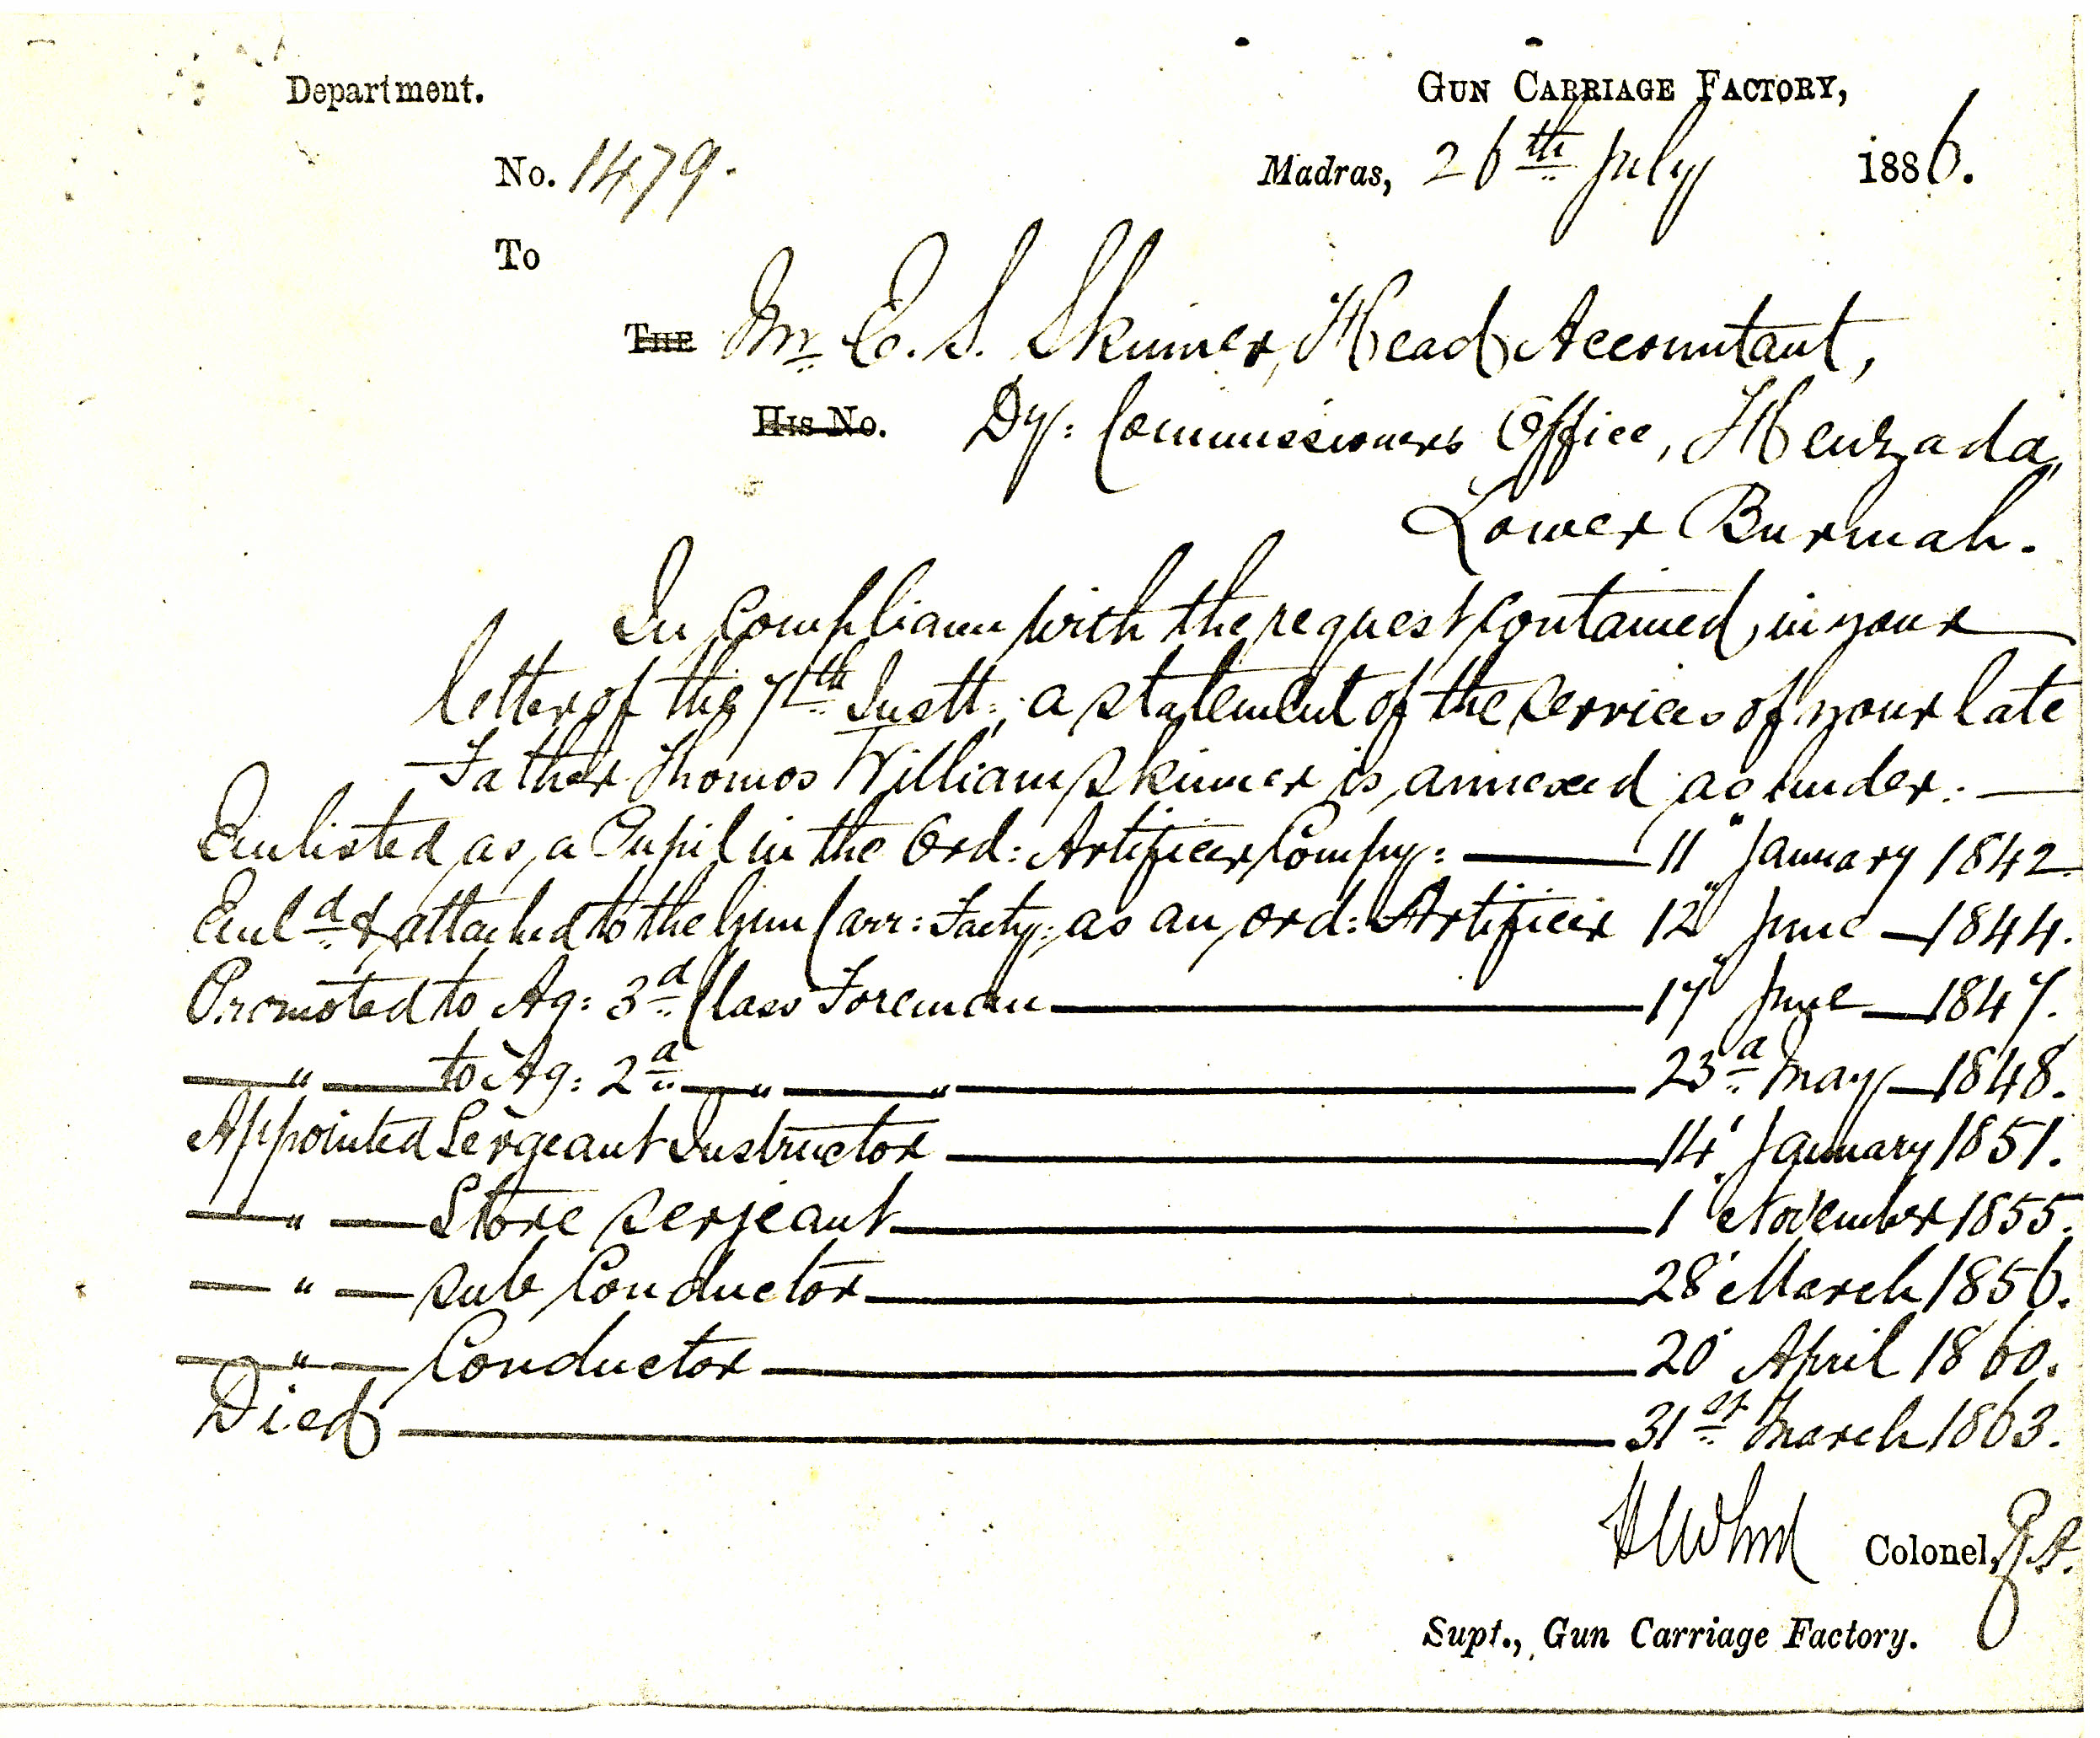 Department.
GUN CARRIAGE FACTORY,
No. 1479.
Madras, 26th July 1886.
To
THE Mr. E. S. Skinner, Head Accountant,
HIS NO. Dy: Commissioners Office, Henzada,
Lower Burmah.
In compliance with the request contained, in your
letter of the 7th Instt:, a statement of the services of your late
Father Thomas William Skinner is annexed as under: —
Enlisted as a Pupil in the Ord: Artificer Compy: — 11" January 1842.
Enld & attached to the Gun Carr: Facty: as an ord: Artificer 12" June — 1844.
Promoted to Ag: 3d Class Foreman — 17" June — 1847.
— " — to Ag: 2d — " — " — 23d May — 1848.
Appointed Sergeant Instructor — 14' January 1851.
— " — Store Serjeant — 1' November 1855.
— " — Sub Conductor — 28' March 1856.
— " — Conductor — 20' April 1860.
Died — 31st March 1863.
Colonel, R.A.
Supt., Gun Carriage Factory.